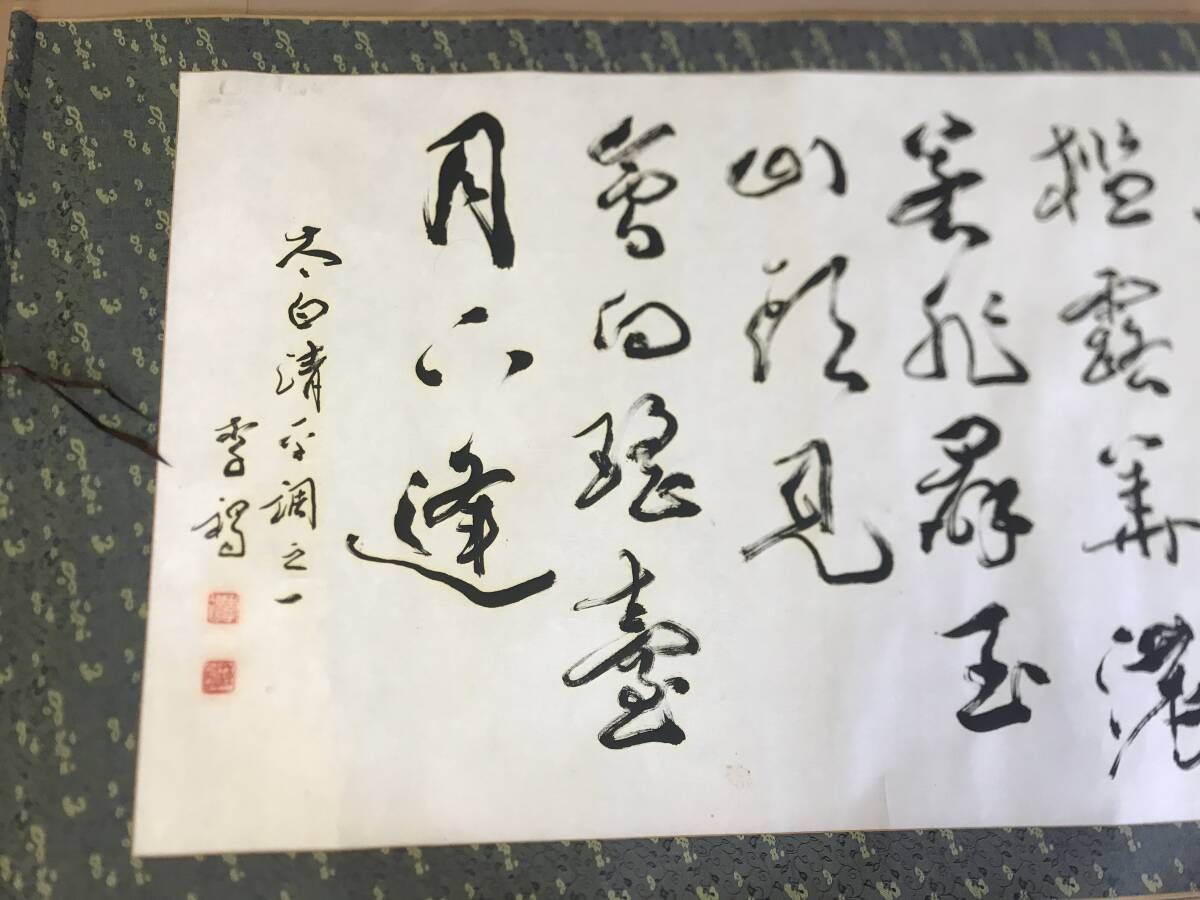 檻露華濃
若非群玉
山頭見
會向瑤臺
月下逢
太白清平調之一
李